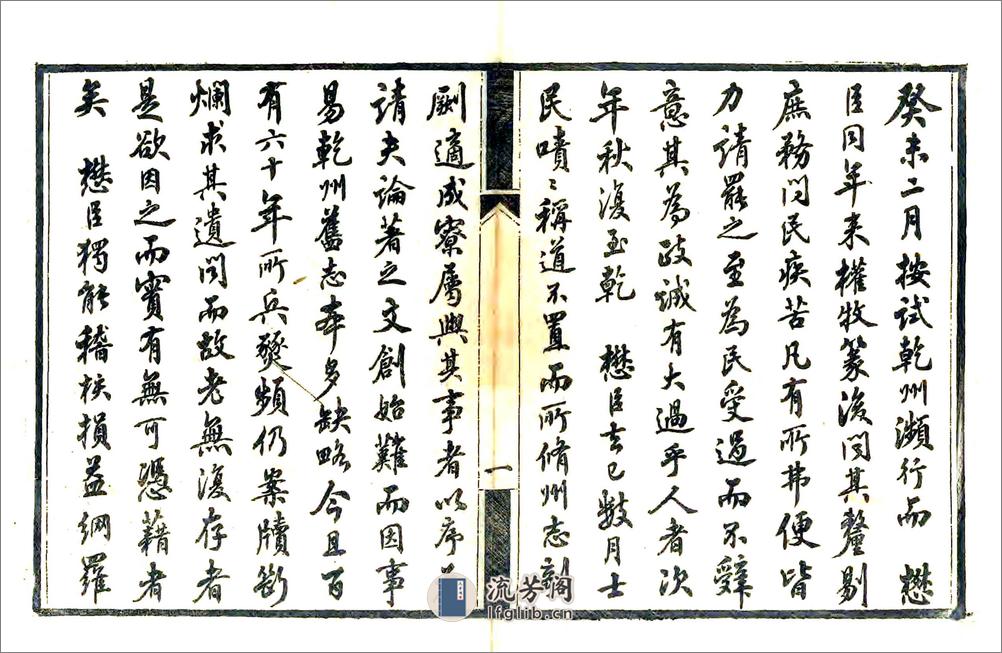 癸未二月按试乾州濒行而 懋
臣同年来權牧篆後问其釐剔
庶務问民疾苦凡有所弗便皆
力請罷之至為民受過而不辭
意其為政誠有大過乎人者次
年秋復至乾 懋臣去已数月士
民嘖〻稱道不置而所脩州志剞
劂適成寮屬與其事者以序
請夫論著之文創始難而因事
易乾州舊志本多缺略今且百
有六十年所兵燹頻仍案牘
爛求其遺闻而故老無復存者
是欲因之而實有無可憑藉者
矣 懋臣獨能稽核損益網羅
一
流芳閣
lfglib.cn